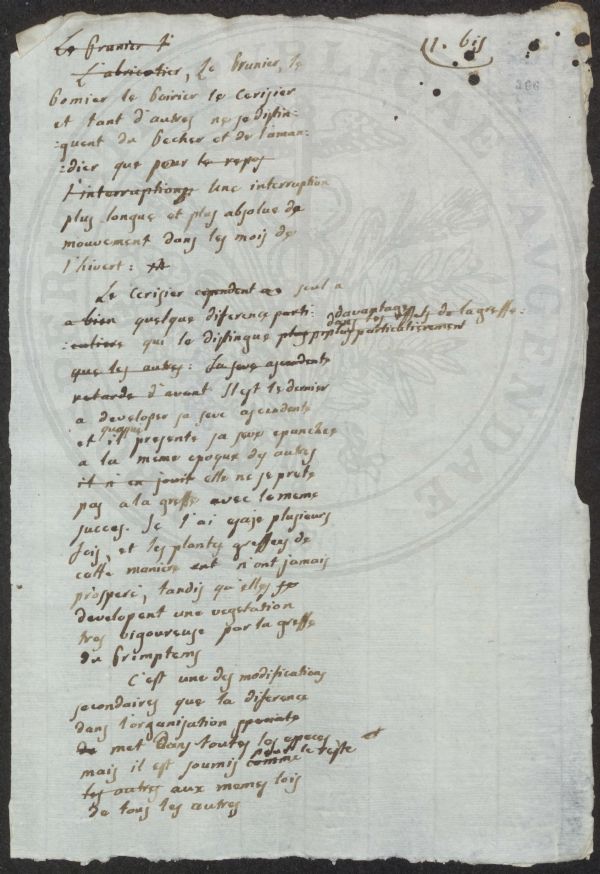 Le Prunier l'
1. bis
L'abricotier, Le Prunier, le
Pomier le Poirier le Cerisier
et tant d'autres ne se distin-
:guent du Pecher et de l'aman-
:dier que pour le repos
l'interruption Une interruption
plus longue et plus absolue de
mouvement dans les mois de
l'hivert:
Le Cerisier cependent seul a
a bien quelque diference parti-
:culiere qui le distingue plus plus particulierement
davantage
dans les effets de la greffe
que les autres: La seve ascendente
retarde d'avant Il est le dernier
a developer sa seve ascendente
et quoique il presente sa seve epanchée
a la meme epoque des autres
il n'en jouit elle ne se prete
pas a la greffe avec le meme
succes. Je l'ai essaje plusieurs
fois, et les plantes greffees de
cette maniere ont n'ont jamais
prosperé, tandis qu'elles se
developent une vegetation
tres vigoureuse par la greffe
du Primptems
C'est une des modifications
secondaires que la diference
dans l'organisation
de met dans toutes les especes
mais il est soumis comme pour le reste
les autres aux memes lois
de tous les autres